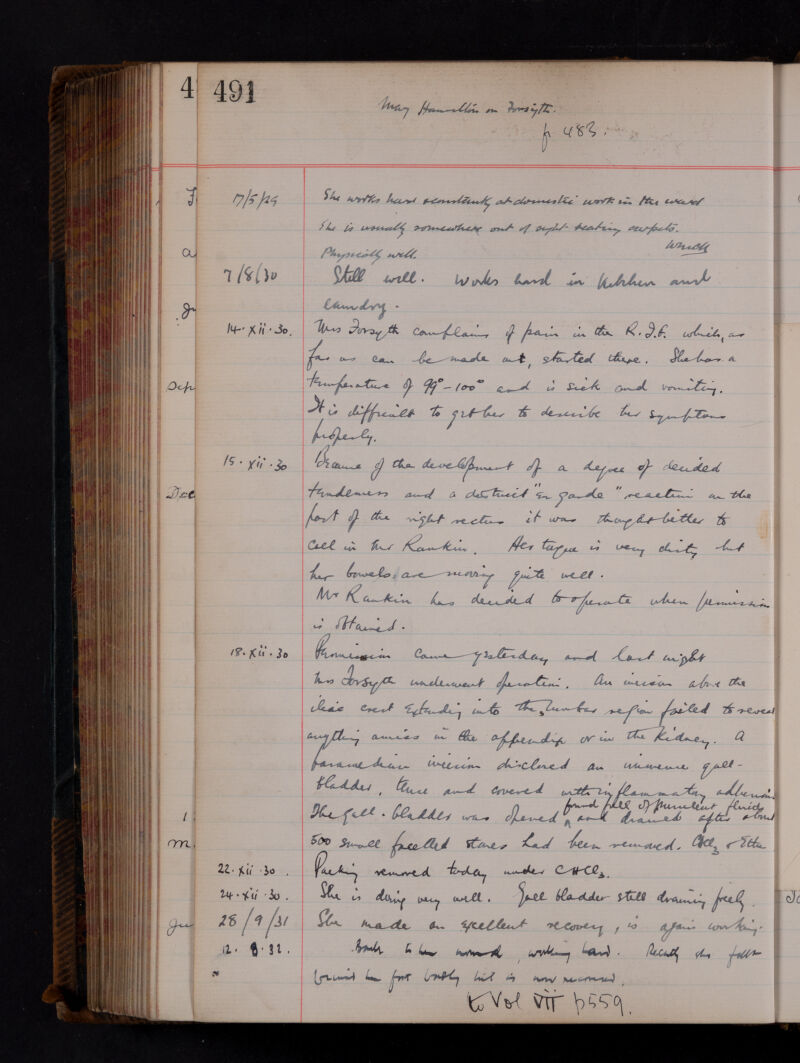 4
491
May Hamilton or Forsyth.
p 483.
7/5/29 She works hard & constantly at domestic work in the ward
She is usually somewhere out of sight beating carpets.
Physically well.
7/8/30 Still well. Works hard in kitchen and
laundry.
14.xii.30. Mrs Forsyth complains of pain in the R.I.F. which, as
far as can be made out, started there. She has a
temperature of 99°-100° and is sick and vomiting.
It is difficult to get her to describe her symptoms
properly.
15.xii.30 Because of the development of a degree of decided
tenderness and a distinct "en garde" reaction on the
part of the right rectus it was thought better to
call in Mr Rankin. Her tongue is very dirty but
her bowels are moving quite well.
Mr Rankin has decided to operate when permission
is obtained.
18.xii.30 Permission came yesterday and last night
Mrs Forsyth underwent operation. An incision above the
iliac crest extending into the lumbar region failed to reveal
anything amiss in the appendix or in the kidney. A
paramedian incision disclosed an immense gall-
bladder, tense and covered with inflammatory adhesions
The gall-bladder was opened, found full of purulent fluid, and drained after about
500 small facetted stones had been removed. CHCl3 & Ether
22.xii.30. Packing removed today under CHCl3.
24.xii.30. She is doing very well. Gall bladder still draining freely.
28/9/31 She made an excellent recovery, is again working.
12.8.32. Back to her normal, working hard. Recently she
her foot but is now recovered.
to Vol VII p559.
Sep
Dec